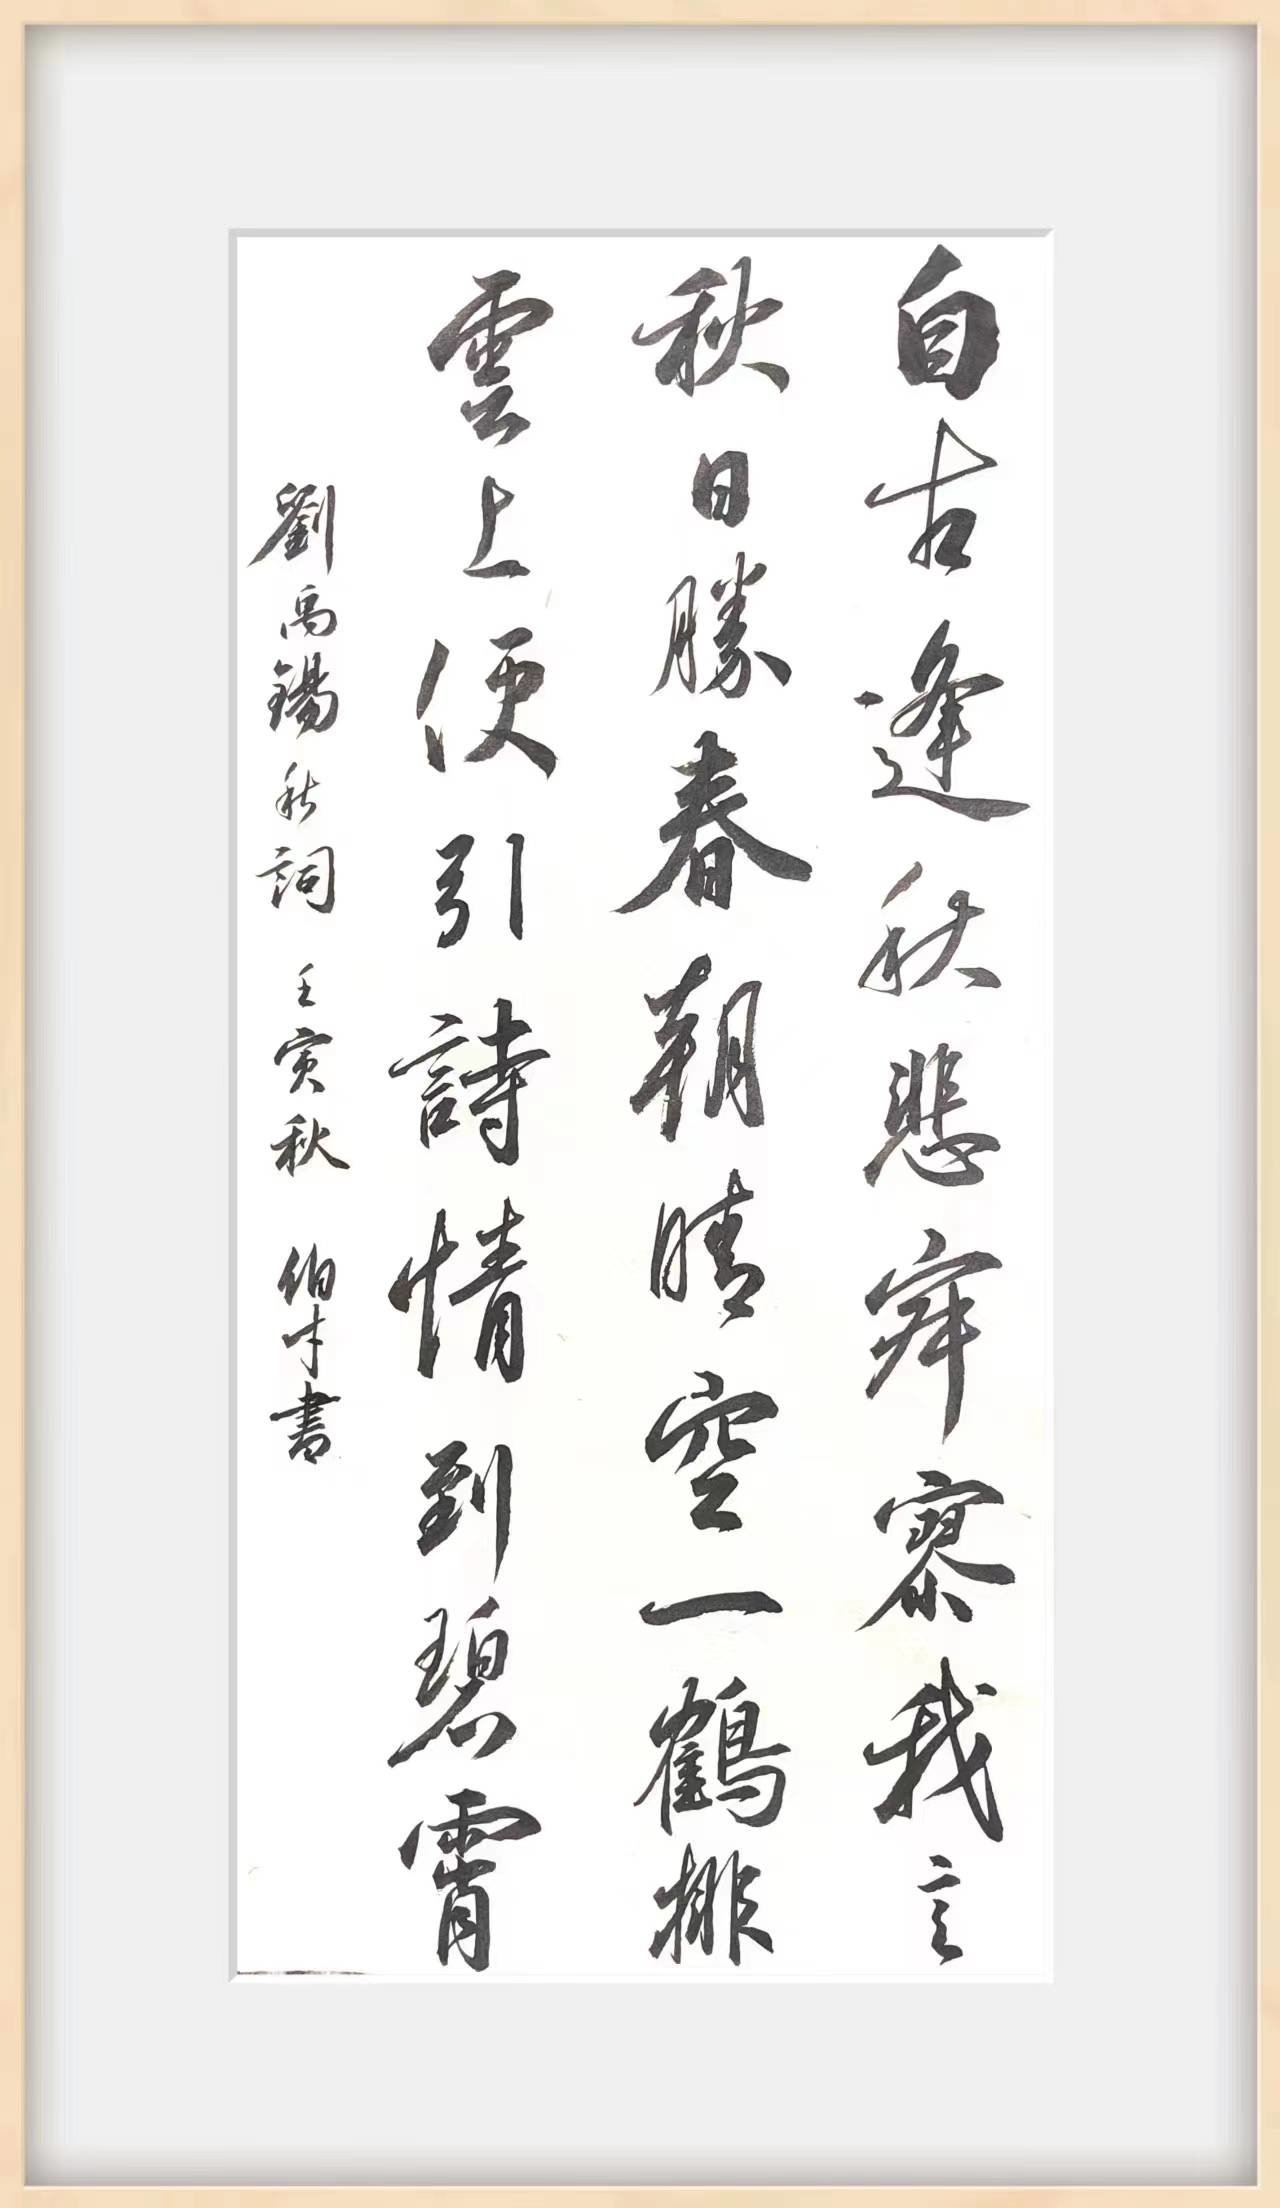 自古逢秋悲寂寥我言
秋日勝春朝晴空一鶴排
雲上便引詩情到碧霄
劉禹錫秋詞 壬寅秋 伯才書